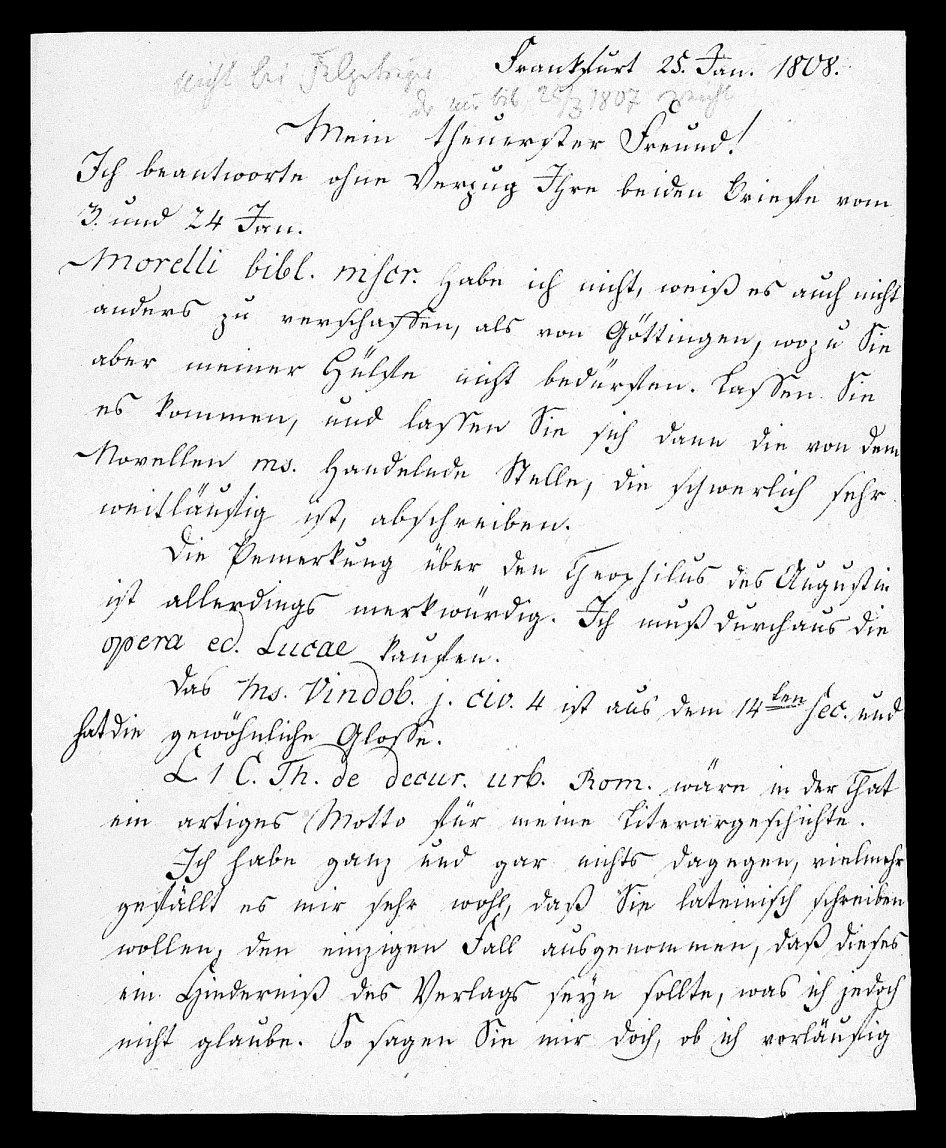 Frankfurt 25. Jan. 1808.
nicht bei
der nur bis 25/3 1807 reicht
Mein theuerster Freund!
Ich beantworte ohne Verzug Ihre beiden Briefe vom
3. und 24 Jan.
Morelli bibl. mscr. habe ich nicht, weiß es auch nicht
anders zu verschaffen, als von Göttingen, wozu Sie
aber meiner Hülfe nicht bedürfen. Lassen Sie
es kommen, und lassen Sie sich dann die von dem
Novellen ms. handelnde Stelle, die schwerlich sehr
weitläufig ist, abschreiben.
Die Bemerkung über den Theophilus des Augustin
ist allerdings merkwürdig. Ich muß durchaus die
opera ed. Lucae kaufen.
Das Ms. Vindob. j. civ. 4 ist aus dem 14ten Sec. und
hat die gewöhnliche Glosse.
L 1 C. Th. de decur. urb. Rom. wäre in der That
ein artiges Motto für meine Literärgeschichte.
Ich habe ganz und gar nichts dagegen, vielmehr
gefällt es mir sehr wohl, daß Sie lateinisch schreiben
wollen, den einzigen Fall ausgenommen, daß dieses
ein Hinderniß des Verlags seyn sollte, was ich jedoch
nicht glaube. So sagen Sie mir doch, ob ich vorläufig